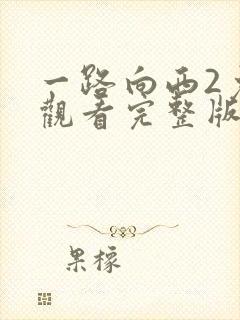 一路向西2
觀看完整版
果檬